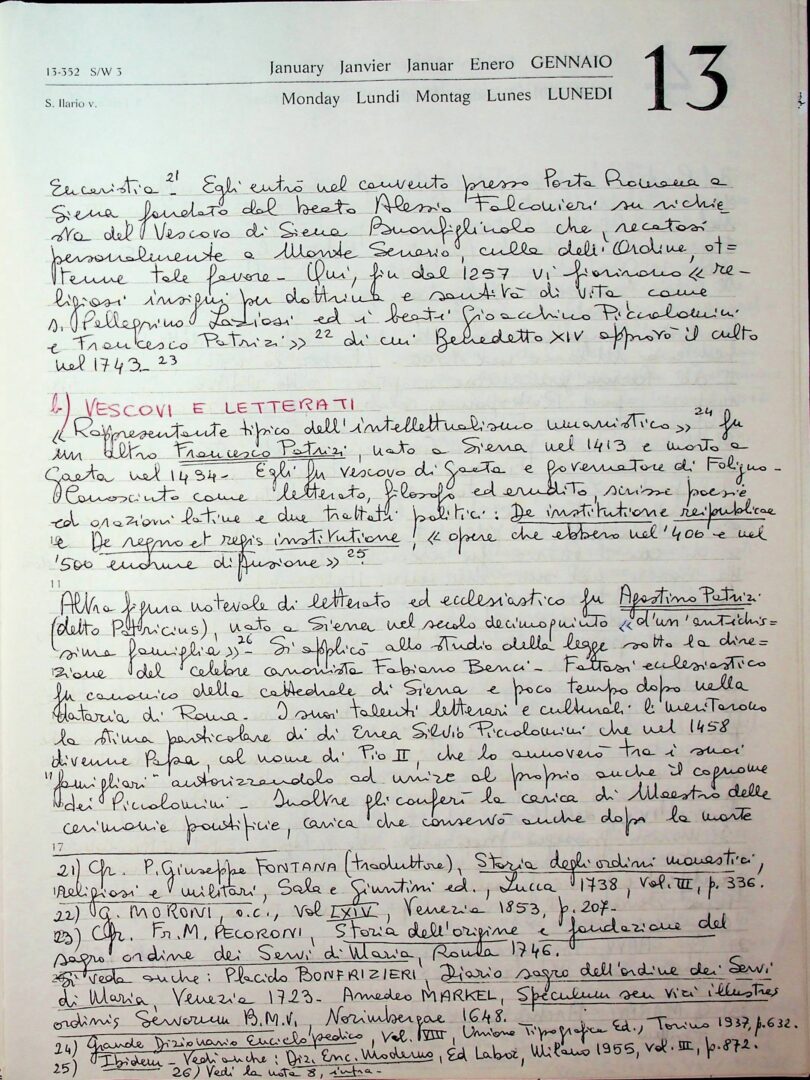 13-352 S/W 3
January Janvier Januar Enero GENNAIO
13
S. Ilario v.
Monday Lundi Montag Lunes LUNEDI
Eucaristia 21_ Egli entrò nel convento presso Porta Romana a
Siena, fondato dal beato Alessio Falconieri su richie
sta del Vescovo di Siena Buonfigliuolo che, recatosi
personalmente a Monte Senario, culla dell'Ordine, ot=
tenne tale favore_ Qui, fin dal 1257 vi fiorirono « re-
ligiosi insigni per dottrina e santità di vita, come
s. Pellegrino Laziosi ed i beati Gioacchino Piccolomini
e Francesco Patrizi» 22 di cui Benedetto XIV approvò il culto
nel 1743_ 23
b) VESCOVI E LETTERATI
« Rappresentante tipico dell'intellettualismo umanistico» 24 fu
un altro Francesco Patrizi, nato a Siena nel 1413 e morto a
Gaeta nel 1494_ Egli fu vescovo di Gaeta e governatore di Foligno_
Conosciuto come letterato, filosofo ed erudito, scrisse poesie
ed orazioni latine e due trattati politici: De institutione reipublicae
e De regno et regis institutione, « opere che ebbero nel '400 e nel
'500 enorme diffusione» 25
11
Altra figura notevole di letterato ed ecclesiastico fu Agostino Patrizi
(detto Patricius), nato a Siena nel secolo decimoquinto «d'un'antichis=
sima famiglia» 26_ Si applicò allo studio della legge sotto la dire=
zione del celebre canonista Fabiano Benci_ Fattosi ecclesiastico
fu canonico della cattedrale di Siena e poco tempo dopo nella
dataria di Roma. I suoi talenti letterari e culturali li meritarono
la stima particolare di di Enea Silvio Piccolomini che nel 1458
divenne Papa, col nome di Pio II, che lo annoverò tra i suoi
"famigliari" autorizzandolo ad unire al proprio anche il cognome
dei Piccolomini_ Inoltre gli conferì la carica di Maestro delle
cerimonie pontificie, carica che conservò anche dopo la morte
17
21) Cfr. P. Giuseppe FONTANA (traduttore), Storia degli ordini monastici,
religiosi e militari, Sala e Giuntini ed., Lucca 1738, Vol. III, p. 336.
22) G. MORONI, o.c., Vol LXIV, Venezia 1853, p. 207_
23) Cfr. Fr. M. PECORONI, Storia dell'origine e fondazione del
sagro ordine dei Servi di Maria, Roma 1746.
Si veda anche: Placido BONFRIZIERI, Diario sagro dell'ordine dei Servi
di Maria, Venezia 1723_ Amedeo MARKEL, Speculum seu vici illustres
ordinis Servorum B.M.V., Norimbergae 1648.
24) Grande Dizionario Enciclopedico, Vol. VIII, Unione Tipografica Ed., Torino 1937, p. 632.
25) Ibidem_ Vedi anche: Diz. Enc. Moderno, Ed Labor, Milano 1955, vol. III, p. 872.
26) Vedi la nota 8, infra_